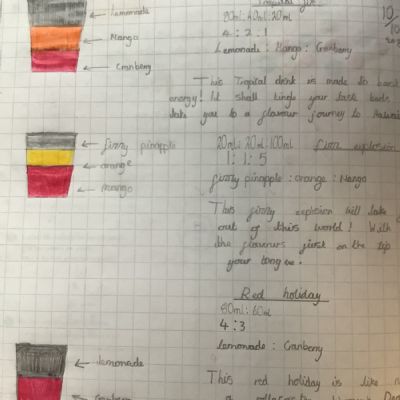 Lemonade
80ml:40ml:20ml
10/
4 : 2 : 1
Mango
Lemonade : Mango : Cranberry
Cranberry
This Tropical drink is made to
energy! It shall
take you to a flavour journey to Hawaii
fizzy pinapple
20ml:20ml:100ml
fizzy explosion
orange
1 : 1 : 5
mango
fizzy pinapple : orange : Mango
This fizzy explosion will take
out of this world! With
the flavours just on the tip
your tongue.
Red holiday
80ml:60ml
4:3
lemonade : Cranberry
lemonade
This red holiday is like